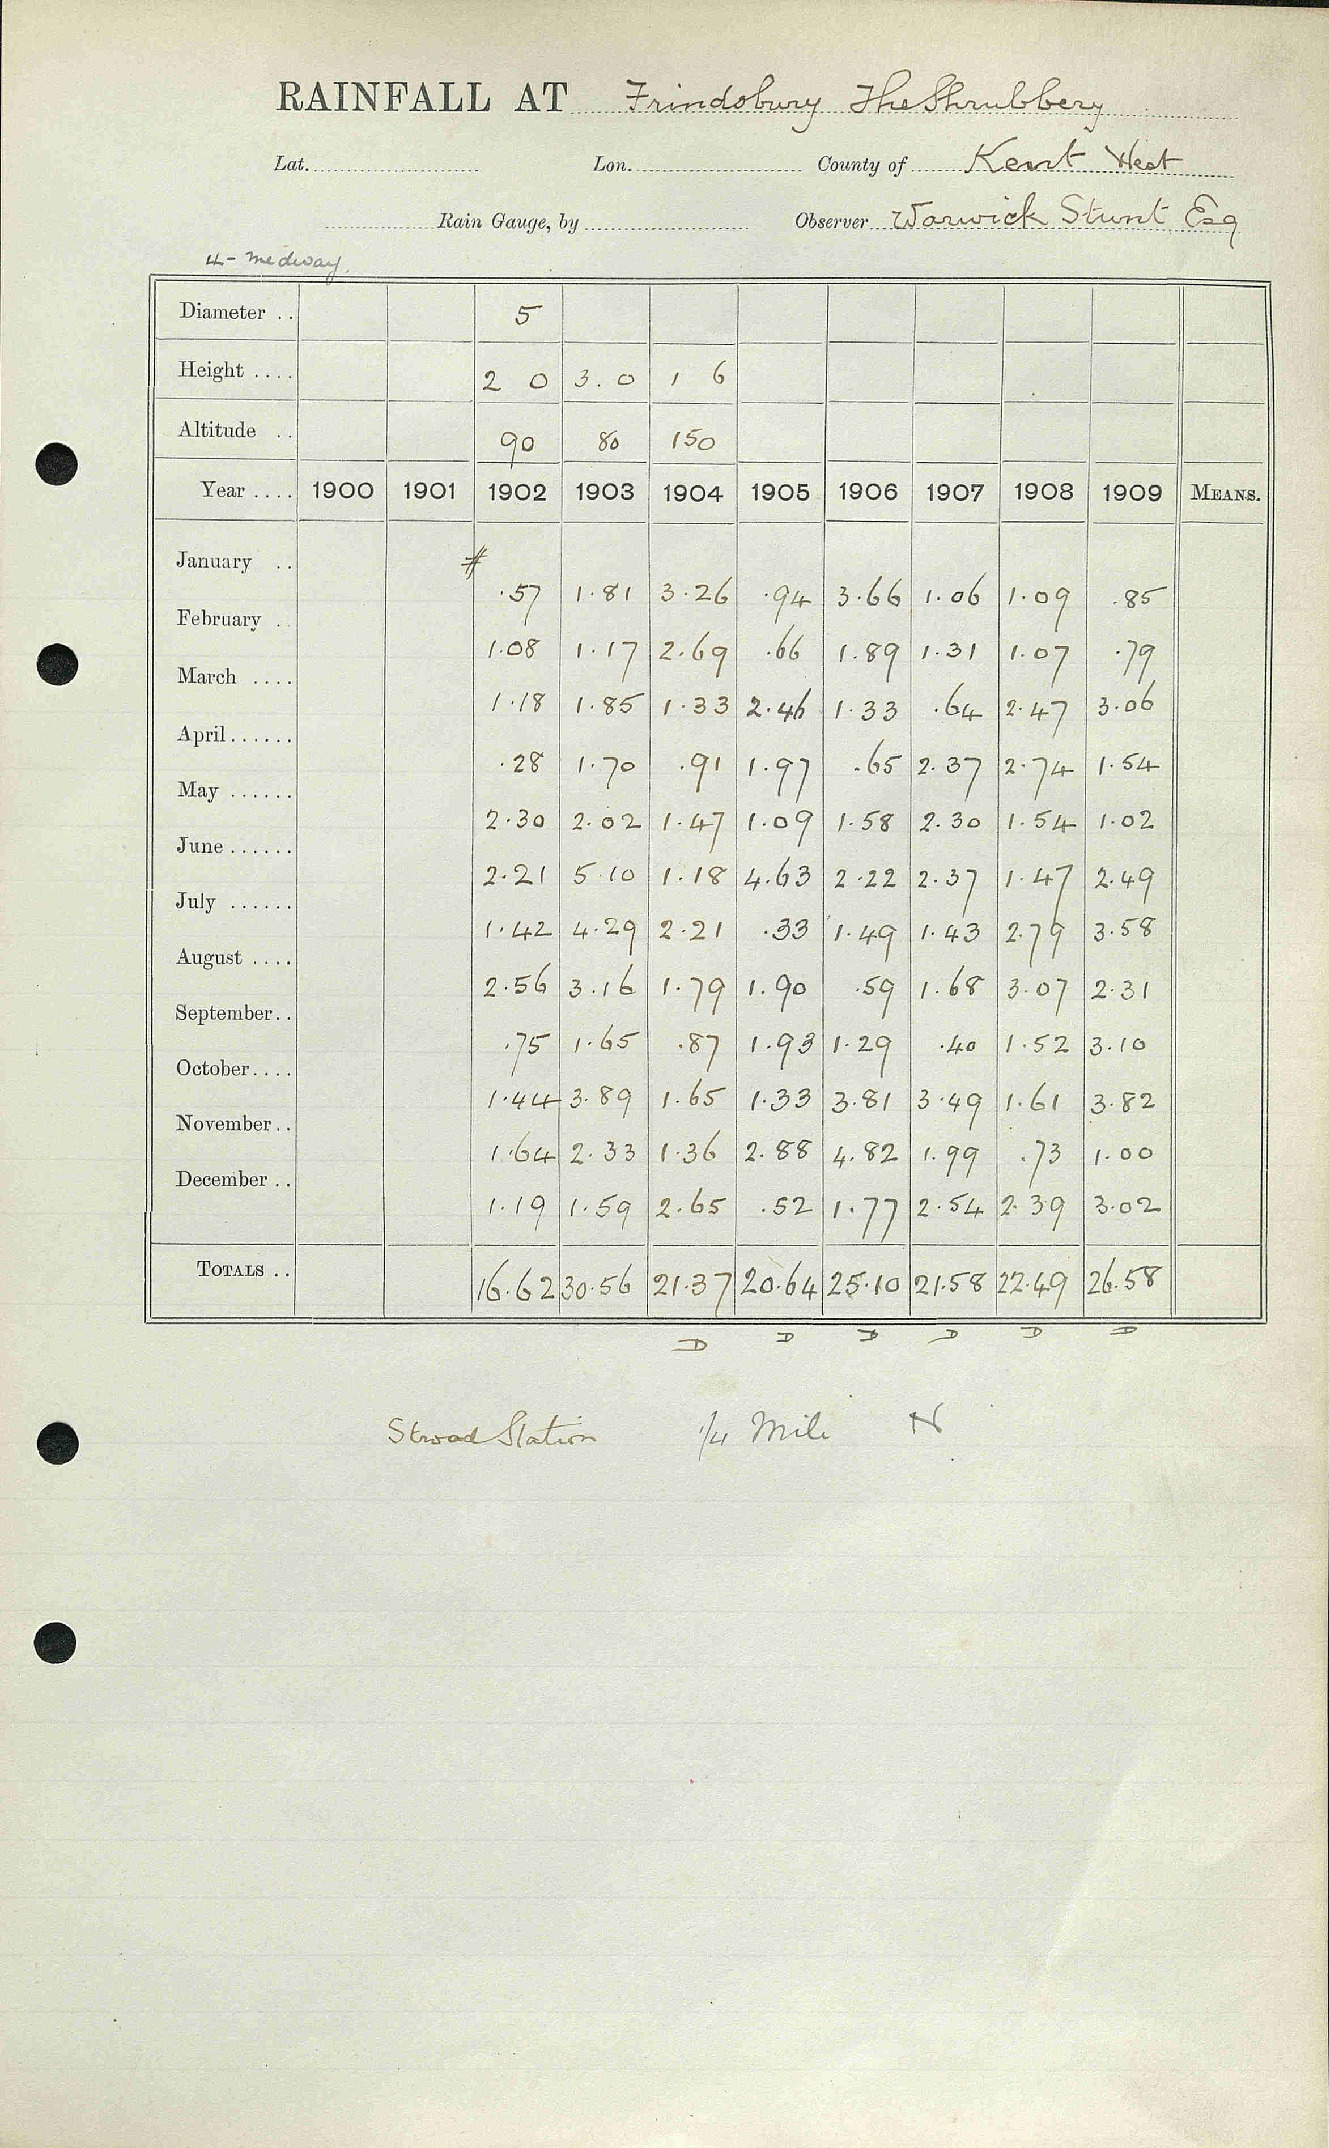 RAINFALL AT Frindsbury The Shrubbery
Lat. Lon. County of Kent West
Rain Gauge, by Observer Warwick Stunt Esq
4 - Medway
Diameter .. 5
Height .... 2 0 3.0 1 6
Altitude .. 90 80 150
Year .... 1900 1901 1902 1903 1904 1905 1906 1907 1908 1909 MEANS.
January .. # .57 1.81 3.26 .94 3.66 1.06 1.09 .85
February .. 1.08 1.17 2.69 .66 1.89 1.31 1.07 .79
March .... 1.18 1.85 1.33 2.46 1.33 .64 2.47 3.06
April...... .28 1.70 .91 1.97 .65 2.37 2.74 1.54
May ...... 2.30 2.02 1.47 1.09 1.58 2.30 1.54 1.02
June...... 2.21 5.10 1.18 4.63 2.22 2.37 1.47 2.49
July ...... 1.42 4.29 2.21 .33 1.49 1.43 2.79 3.58
August .... 2.56 3.16 1.79 1.90 .59 1.68 3.07 2.31
September.. .75 1.65 .87 1.93 1.29 .40 1.52 3.10
October.... 1.44 3.89 1.65 1.33 3.81 3.49 1.61 3.82
November.. 1.64 2.33 1.36 2.88 4.82 1.99 .73 1.00
December .. 1.19 1.59 2.65 .52 1.77 2.54 2.39 3.02
TOTALS .. 16.62 30.56 21.37 20.64 25.10 21.58 22.49 26.58
D D D D D D
Strood Station 1/4 Mile N